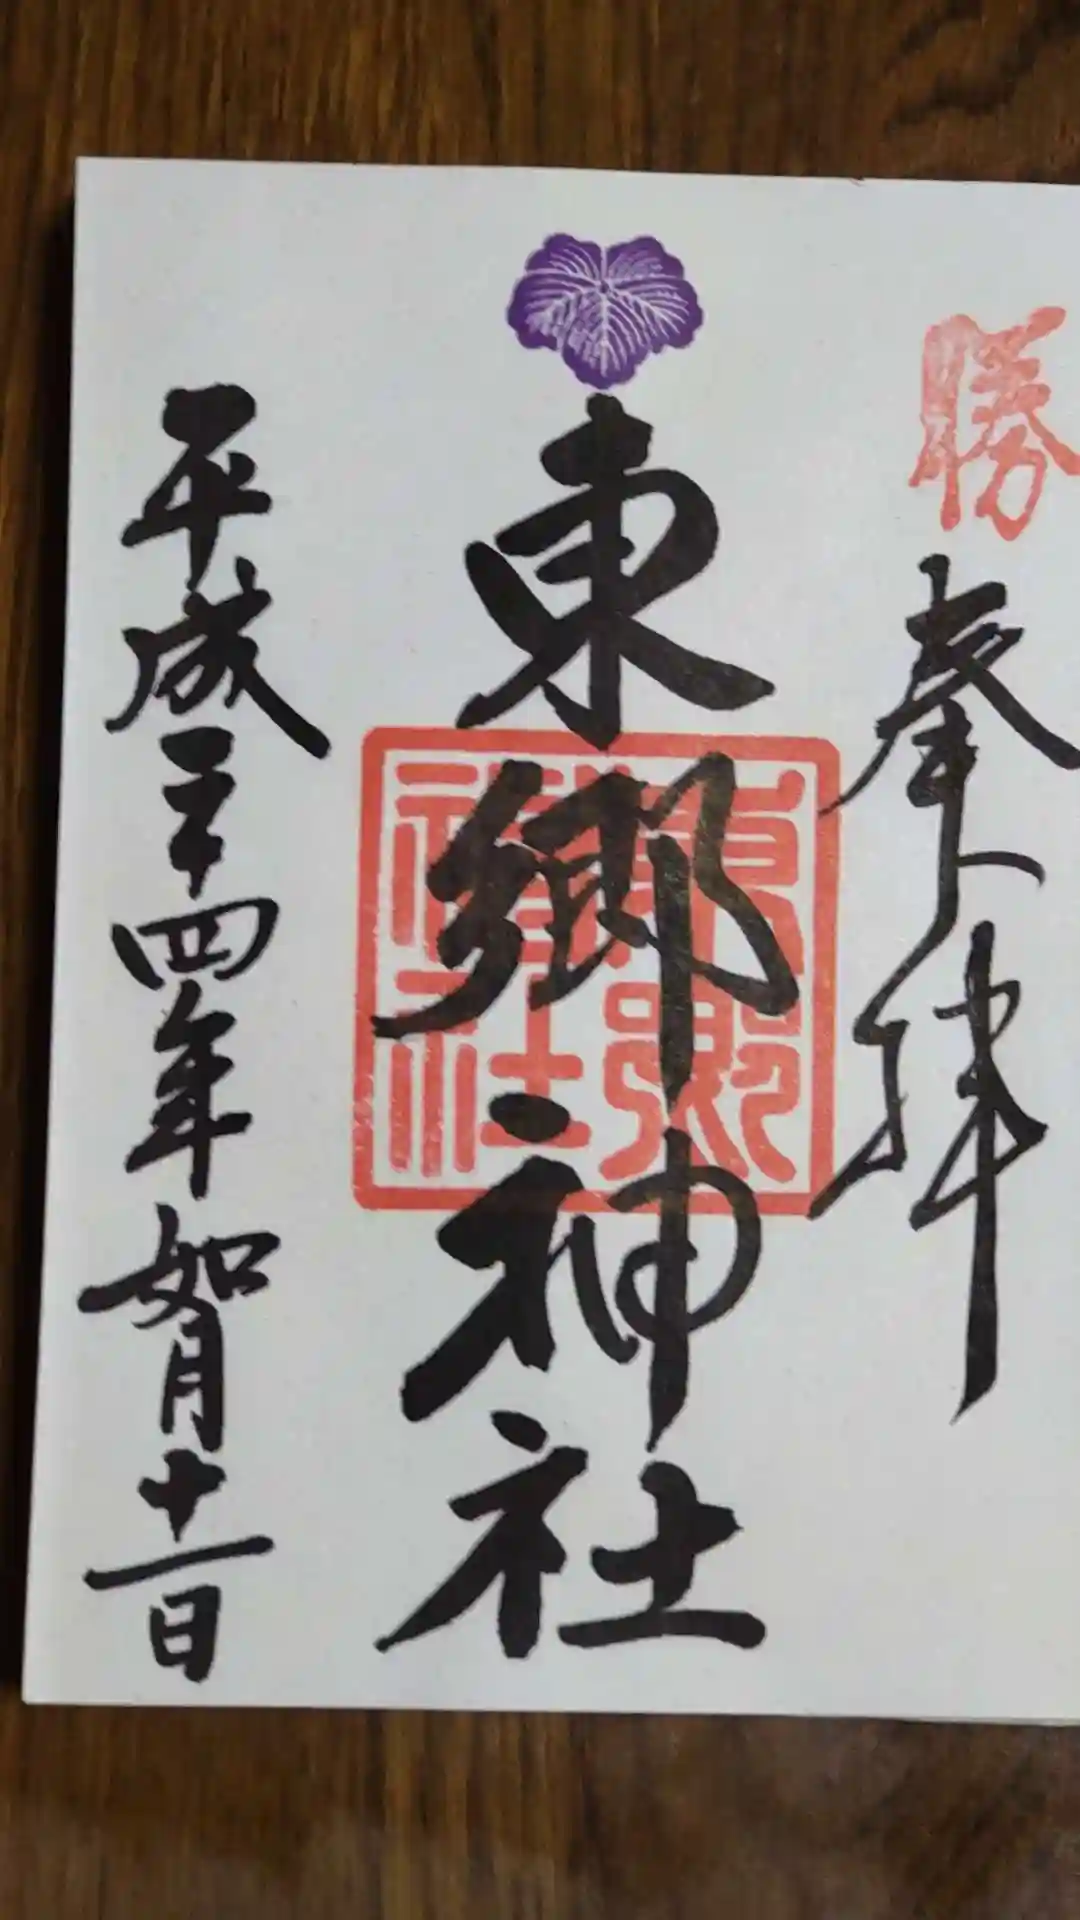 勝
奉拝
東郷神社
東郷神社
平成二十四年如月十一日